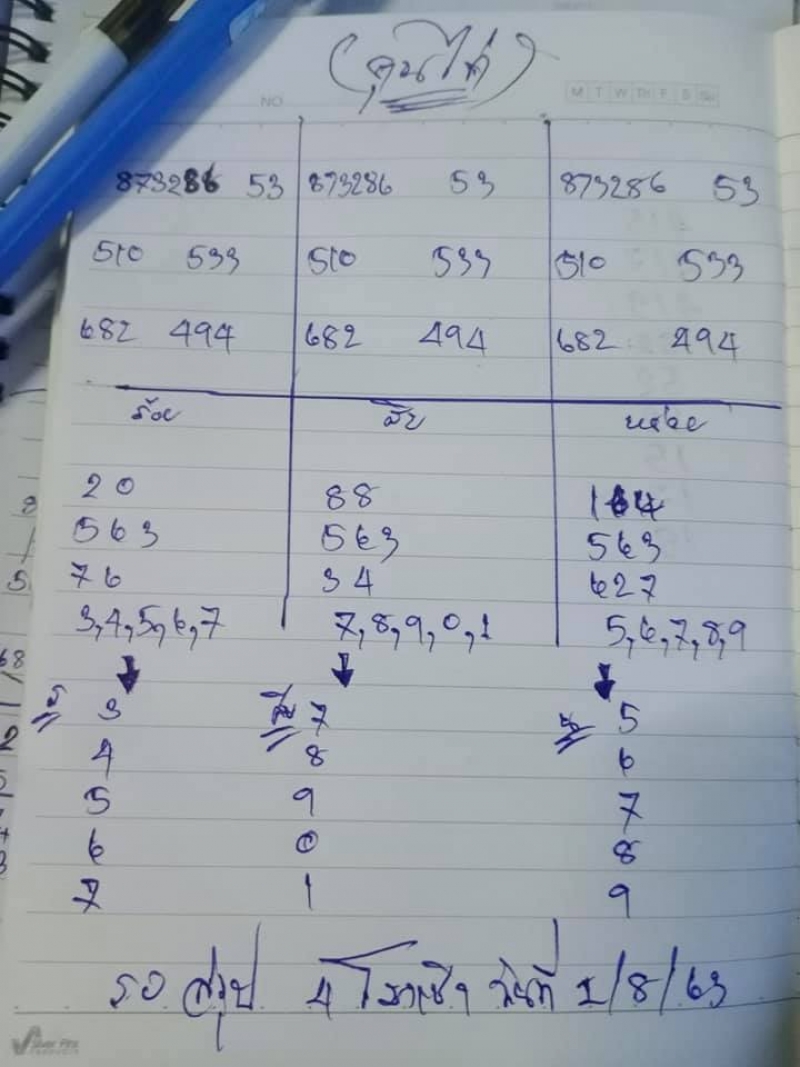 NO. M T W TH F S SU
873286 53 873286 53 873286 53
510 533 510 533 510 533
682 494 682 494 682 494
ร้อย สิบ หน่วย
20 88 164
563 563 563
76 34 627
3,4,5,6,7 7,8,9,0,1 5,6,7,8,9
3 7 5
4 8 6
5 9 7
6 0 8
7 1 9
รอ สรุป 4 วันที่ 1/8/63